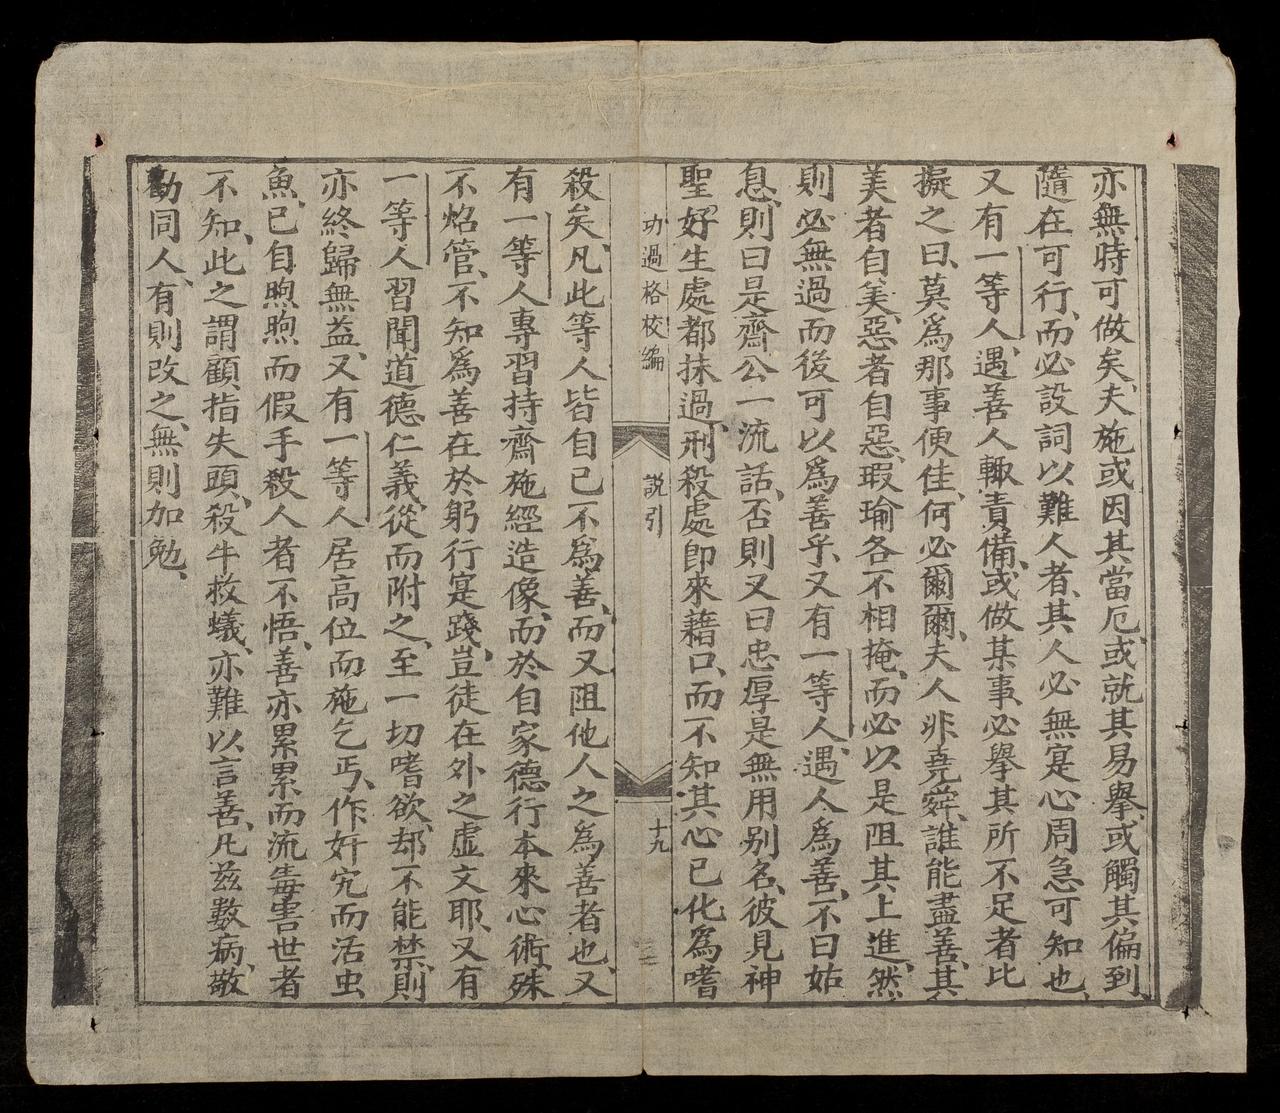 亦無時可做矣、夫施或因其當厄、或就其易舉、或觸其偏到、
隨在可行、而必設詞以難人者、其人必無寔心周急可知也、
又有一等人、遇善人輙責備、或做某事、必舉其所不足者比
擬之曰、莫爲那事便佳、何必爾爾、夫人非堯舜、誰能盡善、其
美者自美、惡者自惡、瑕瑜各不相掩、而必以是阻其上進、然
則必無過而後可以爲善乎、又有一等人、遇人爲善、不曰姑
息、則曰是齋公一流話、否則又曰忠厚是無用别名、彼見神
聖好生處都抹過、刑殺處即來藉口、而不知其心已化爲嗜
功過格校編
説引
十九
殺矣、凡此等人皆自己不爲善、而又阻他人之爲善者也、又
有一等人專習持齋施經造像、而於自家德行本來心術、殊
不炤管、不知爲善在於躬行寔踐、豈徒在外之虛文耶、又有
一等人習聞道德仁義、從而附之、至一切嗜欲、却不能禁、則
亦終歸無益、又有一等人居高位而施乞丐、作奸宄而活虫
魚、已自煦煦而假手殺人者不悟、善亦累累而流毒害世者
不知、此之謂顧指失頭、殺牛救蟻、亦難以言善、凡兹數病、敬
勸同人、有則改之、無則加勉、